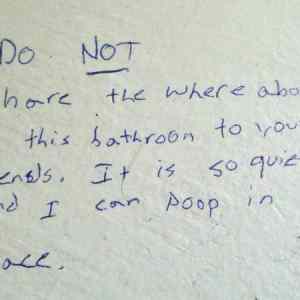 Do NOT
hare the where abo
this bathroom to you
ends. It is so quie
nd I can poop in
ace.